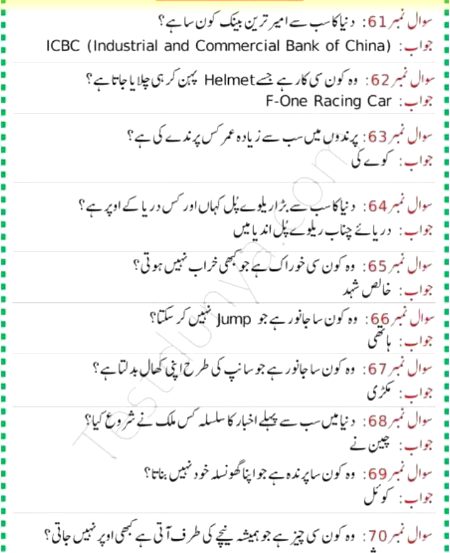 سوال نمبر61: دنیا کا سب سے امیر ترین بینک کون سا ہے؟
جواب: ICBC (Industrial and Commercial Bank of China)
سوال نمبر62: وہ کون سی کار ہے جسے Helmet پہن کر ہی چلایا جاتا ہے؟
جواب: F-One Racing Car
سوال نمبر63: پرندوں میں سب سے زیادہ عمر کس پرندے کی ہے؟
جواب: کوے کی
سوال نمبر64: دنیا کا سب سے بڑا ریلوے پُل کہاں اور کس دریا کے اوپر ہے؟
جواب: دریائے چناب ریلوے پُل انڈیا میں
سوال نمبر65: وہ کون سی خوراک ہے جو کبھی خراب نہیں ہوتی؟
جواب: خالص شہد
سوال نمبر66: وہ کون سا جانور ہے جو Jump نہیں کر سکتا؟
جواب: ہاتھی
سوال نمبر67: وہ کون سا جانور ہے جو سانپ کی طرح اپنی کھال بدلتا ہے؟
جواب: مکڑی
سوال نمبر68: دنیا میں سب سے پہلے اخبار کا سلسلہ کس ملک نے شروع کیا؟
جواب: چین نے
سوال نمبر69: وہ کون سا پرندہ ہے جو اپنا گھونسلہ خود نہیں بناتا؟
جواب: کوئل
سوال نمبر70: وہ کون سی چیز ہے جو ہمیشہ نیچے کی طرف آتی ہے کبھی اوپر نہیں جاتی؟
Testdunya.com